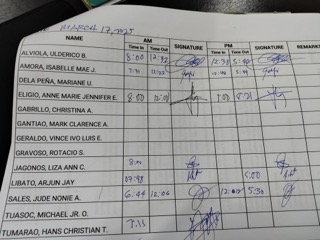 MARCH 17, 2025
NAME AM SIGNATURE PM SIGNATURE REMARK
Time In Time Out Time In Time Out
ALVIOLA, ULDERICO B. 8:00 12:32 12:38
AMORA, ISABELLE MAE J.
DELA PEÑA, MARIANE U.
ELIGIO, ANNE MARIE JENNIFER E. 8:00 12:01 1:00
GABRILLO, CHRISTINA A.
GANTIAO, MARK CLARENCE A.
GERALDO, VINCE IVO LUIS E.
GRAVOSO, ROTACIO S.
JAGONOS, LIZA ANN C. 8:00
LIBATO, ARJUN JAY 07:48 5:00
SALES, JUDE NONIE A. 6:44 12:06 5:30
TUASOC, MICHAEL JR. O.
TUMARAO, HANS CHRISTIAN T.